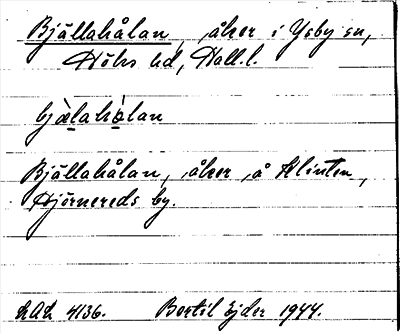 Bjällahålan, åker i Ysby sn,
Höks hd, Hall.l.
bjä̀lahòlan
Bjällahålan, åker å Klinten,
Hjörnereds by.
LAL 4136. Bertil Ejder 1944.